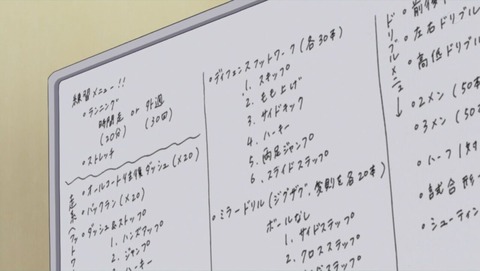 練習メニュー!!
・ランニング
時間走 or 外週
(20分) (30回)
・ストレッチ
・オールコート往復ダッシュ(×20)
・バックラン(×20)
・ダッシュ&ストップ
1. ハンズアップ
2. ジャンプ
3. ハーキー
・ディフェンスフットワーク(各30本)
1. スキップ
2. もも上げ
3. サイドキック
4. ハーキー
5. 両足ジャンプ
6. スライドステップ
・ミラードリル(ジグザグ、変則を各20本)
ボールなし
1. サイドステップ
2. クロスステップ
ドリブルメニュー↓
・前後
・左右ドリブル
・高低ドリブル
・2メン(50本
・3メン(50
・ハーフ1対
・試合形
・シューティン